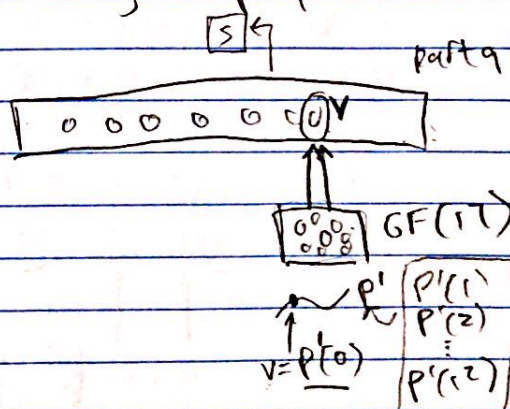 S
part a
V
GF(17)
p'
p'(1)
p'(2)
⋮
p'(12)
v = p'(0)